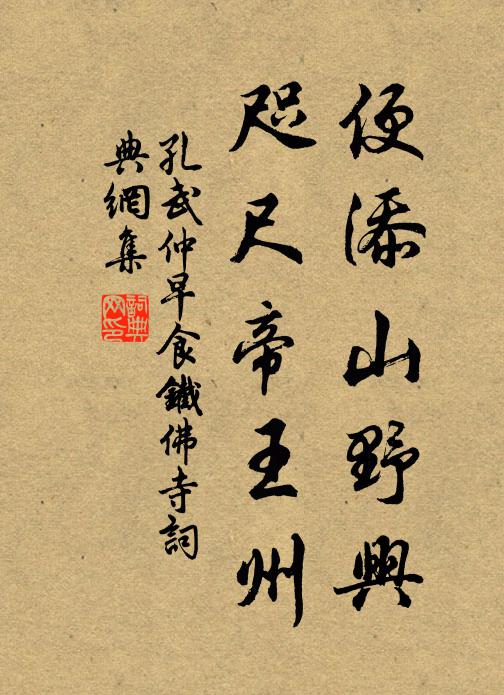 便添山野興
咫尺帝王州
孔武仲早食鐵佛寺詞
典網集
詞典
网印